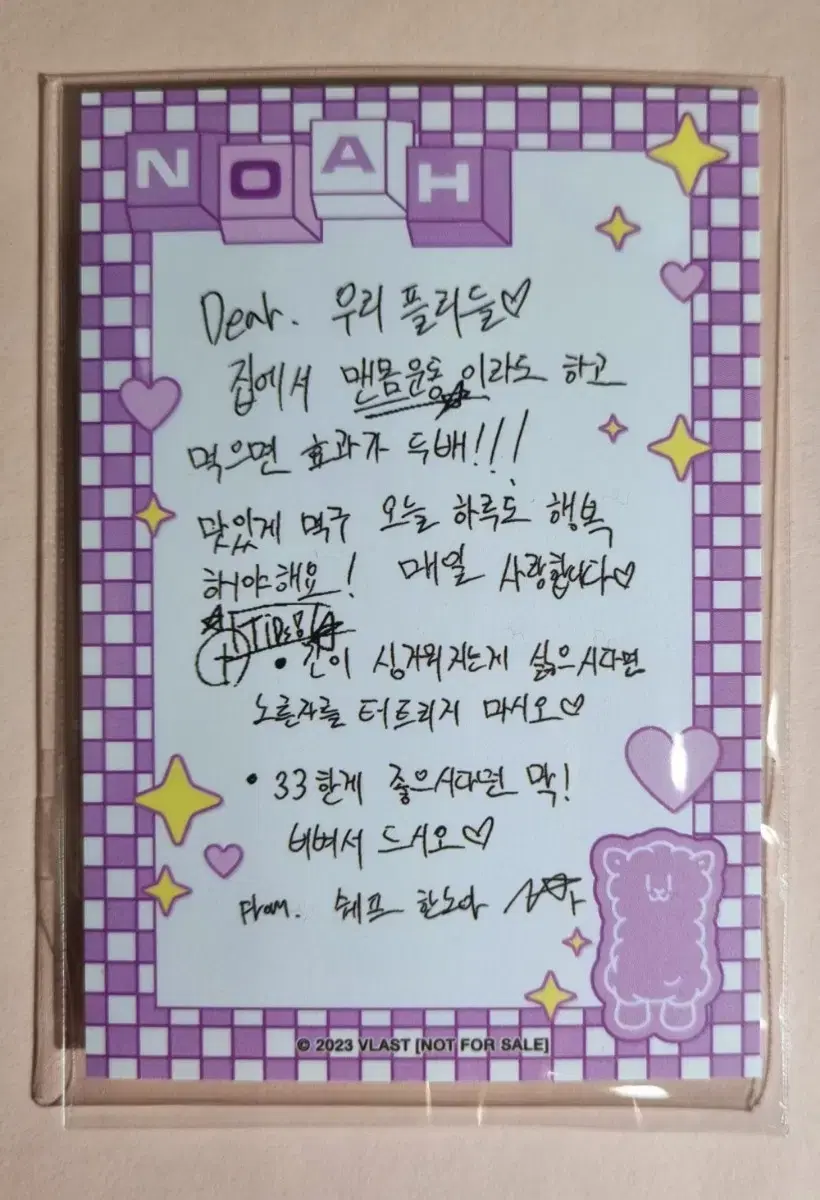 NOAH
Dear. 우리 플리들♡
집에서 맨몸운동이라도 하고
먹으면 효과가 두배!!!
맛있게 먹구 오늘 하루도 행복
해야해요! 매일 사랑합니다♡
+ Tip
• 간이 싱거워지는게 싫으시다면
노른자를 터트리지 마시오♡
• 33한게 좋으시다면 막!
비벼서 드시오♡
From. 쉐프 한노아
© 2023 VLAST [NOT FOR SALE]